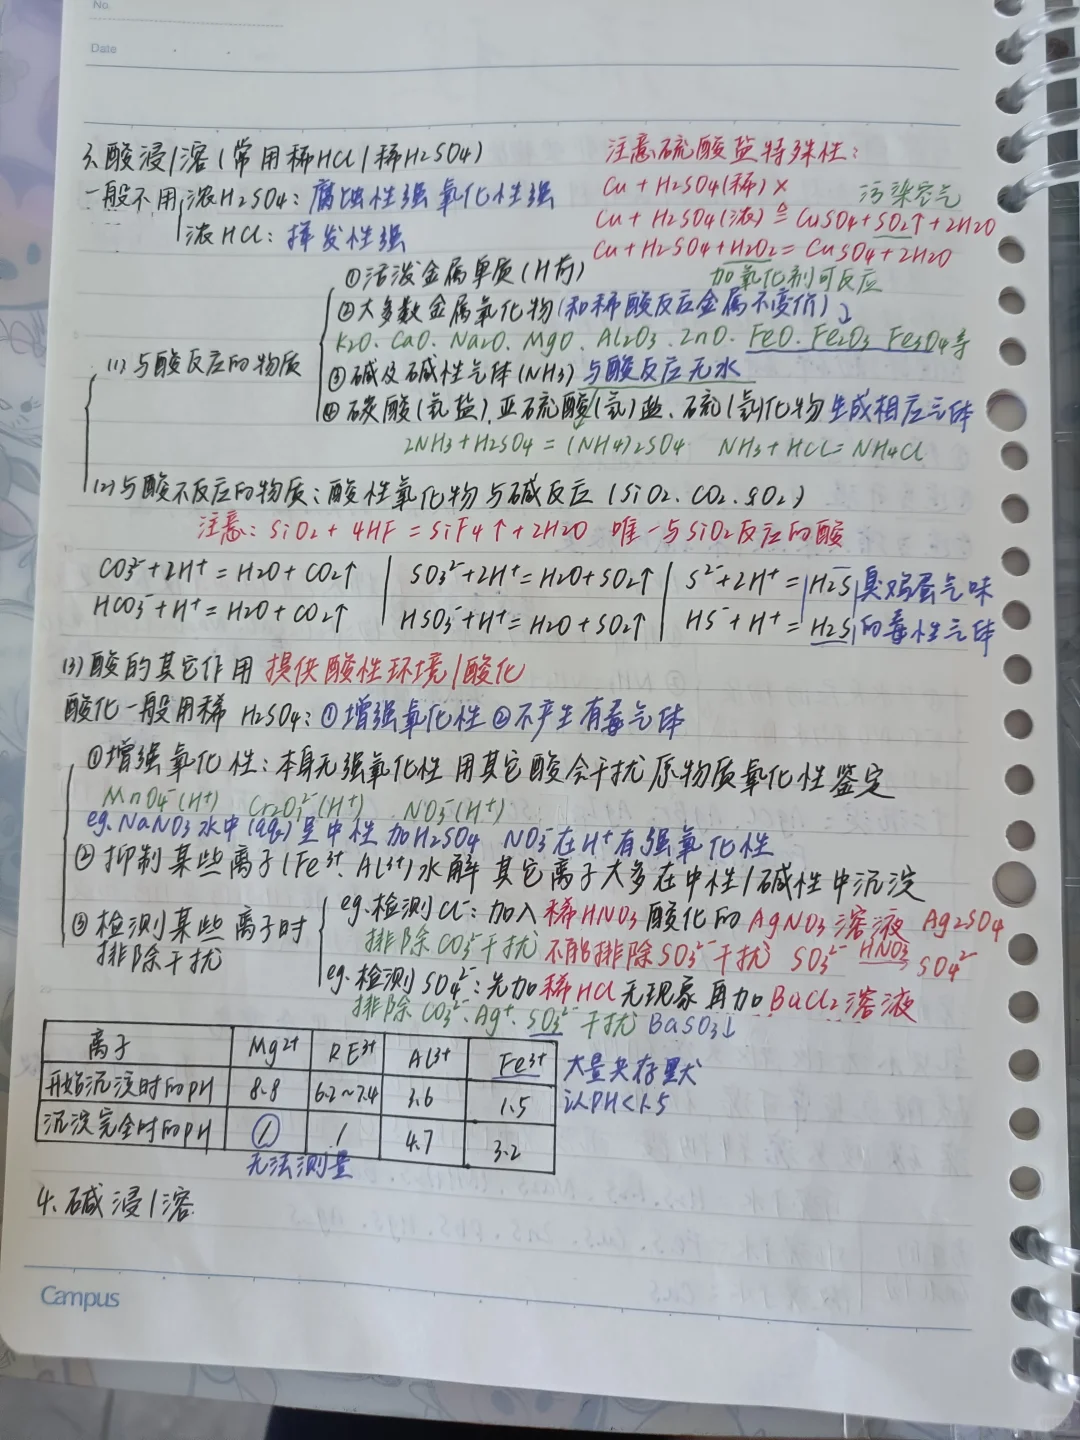 No.
Date
3、酸浸/溶（常用稀HCl/稀H2SO4）
注意硫酸盐特殊性：
一般不用 浓H2SO4：腐蚀性强 氧化性强
浓HCl：挥发性强
Cu + H2SO4(稀) ×
污染空气
Cu + H2SO4(浓) ≙ CuSO4+SO2↑+2H2O
Cu+H2SO4+H2O2=CuSO4+2H2O
加氧化剂可反应
(1) 与酸反应的物质
①活泼金属单质(H前)
②大多数金属氧化物(和稀酸反应金属不变价)
K2O、CaO、Na2O、MgO、Al2O3、ZnO、FeO、Fe2O3 Fe3O4等
③碱及碱性气体(NH3) 与酸反应无水
④碳酸(氢盐)、亚硫酸(氢)盐、硫(氢)化物 生成相应气体
2NH3+H2SO4=(NH4)2SO4 NH3+HCl=NH4Cl
(2)与酸不反应的物质：酸性氧化物与碱反应（SiO2、CO2、SO2）
注意：SiO2+4HF=SiF4↑+2H2O 唯一与SiO2反应的酸
CO3²⁻+2H⁺=H2O+CO2↑ | SO3²⁻+2H⁺=H2O+SO2↑ | S²⁻+2H⁺=H2S 臭鸡蛋气味
HCO3⁻+H⁺=H2O+CO2↑ HSO3⁻+H⁺=H2O+SO2↑ | HS⁻+H⁺=H2S 的毒性气体
(3)酸的其它作用 提供酸性环境/酸化
酸化一般用稀H2SO4：①增强氧化性②不产生有毒气体
①增强氧化性：本身无强氧化性 用其它酸会干扰原物质氧化性鉴定
MnO4⁻(H⁺) Cr2O7²⁻(H⁺) NO3⁻(H⁺)
eg.NaNO3水中(aq)呈中性 加H2SO4 NO3⁻在H⁺有强氧化性
②抑制某些离子(Fe³⁺、Al³⁺)水解 其它离子大多在中性/碱性中沉淀
③检测某些离子时
排除干扰
eg.检测Cl⁻：加入稀HNO3酸化的AgNO3溶液 Ag2SO4
排除CO3²⁻干扰 不能排除SO3²⁻干扰 SO3²⁻ HNO3→ SO4²⁻
eg.检测SO4²⁻：先加稀HCl无现象再加BaCl2溶液
排除CO3²⁻、Ag⁺、SO3²⁻干扰 BaSO3↓
离子 Mg²⁺ RE³⁺ Al³⁺ Fe³⁺
开始沉淀时的pH 8.8 6.2~7.4 3.6 1.5
沉淀完全时的pH / / 4.7 3.2
大量共存默
认PH<1.5
无法测量
4、碱浸/溶
Campus